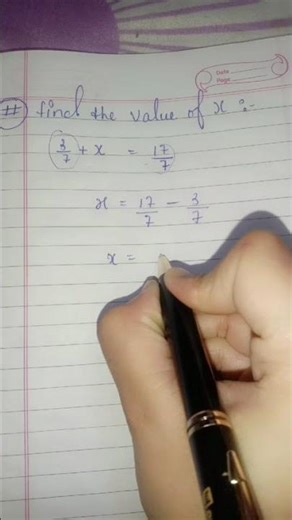 Date
Page
# find the value of x :-
3/7 + x = 17/7
x = 17/7 - 3/7
x =